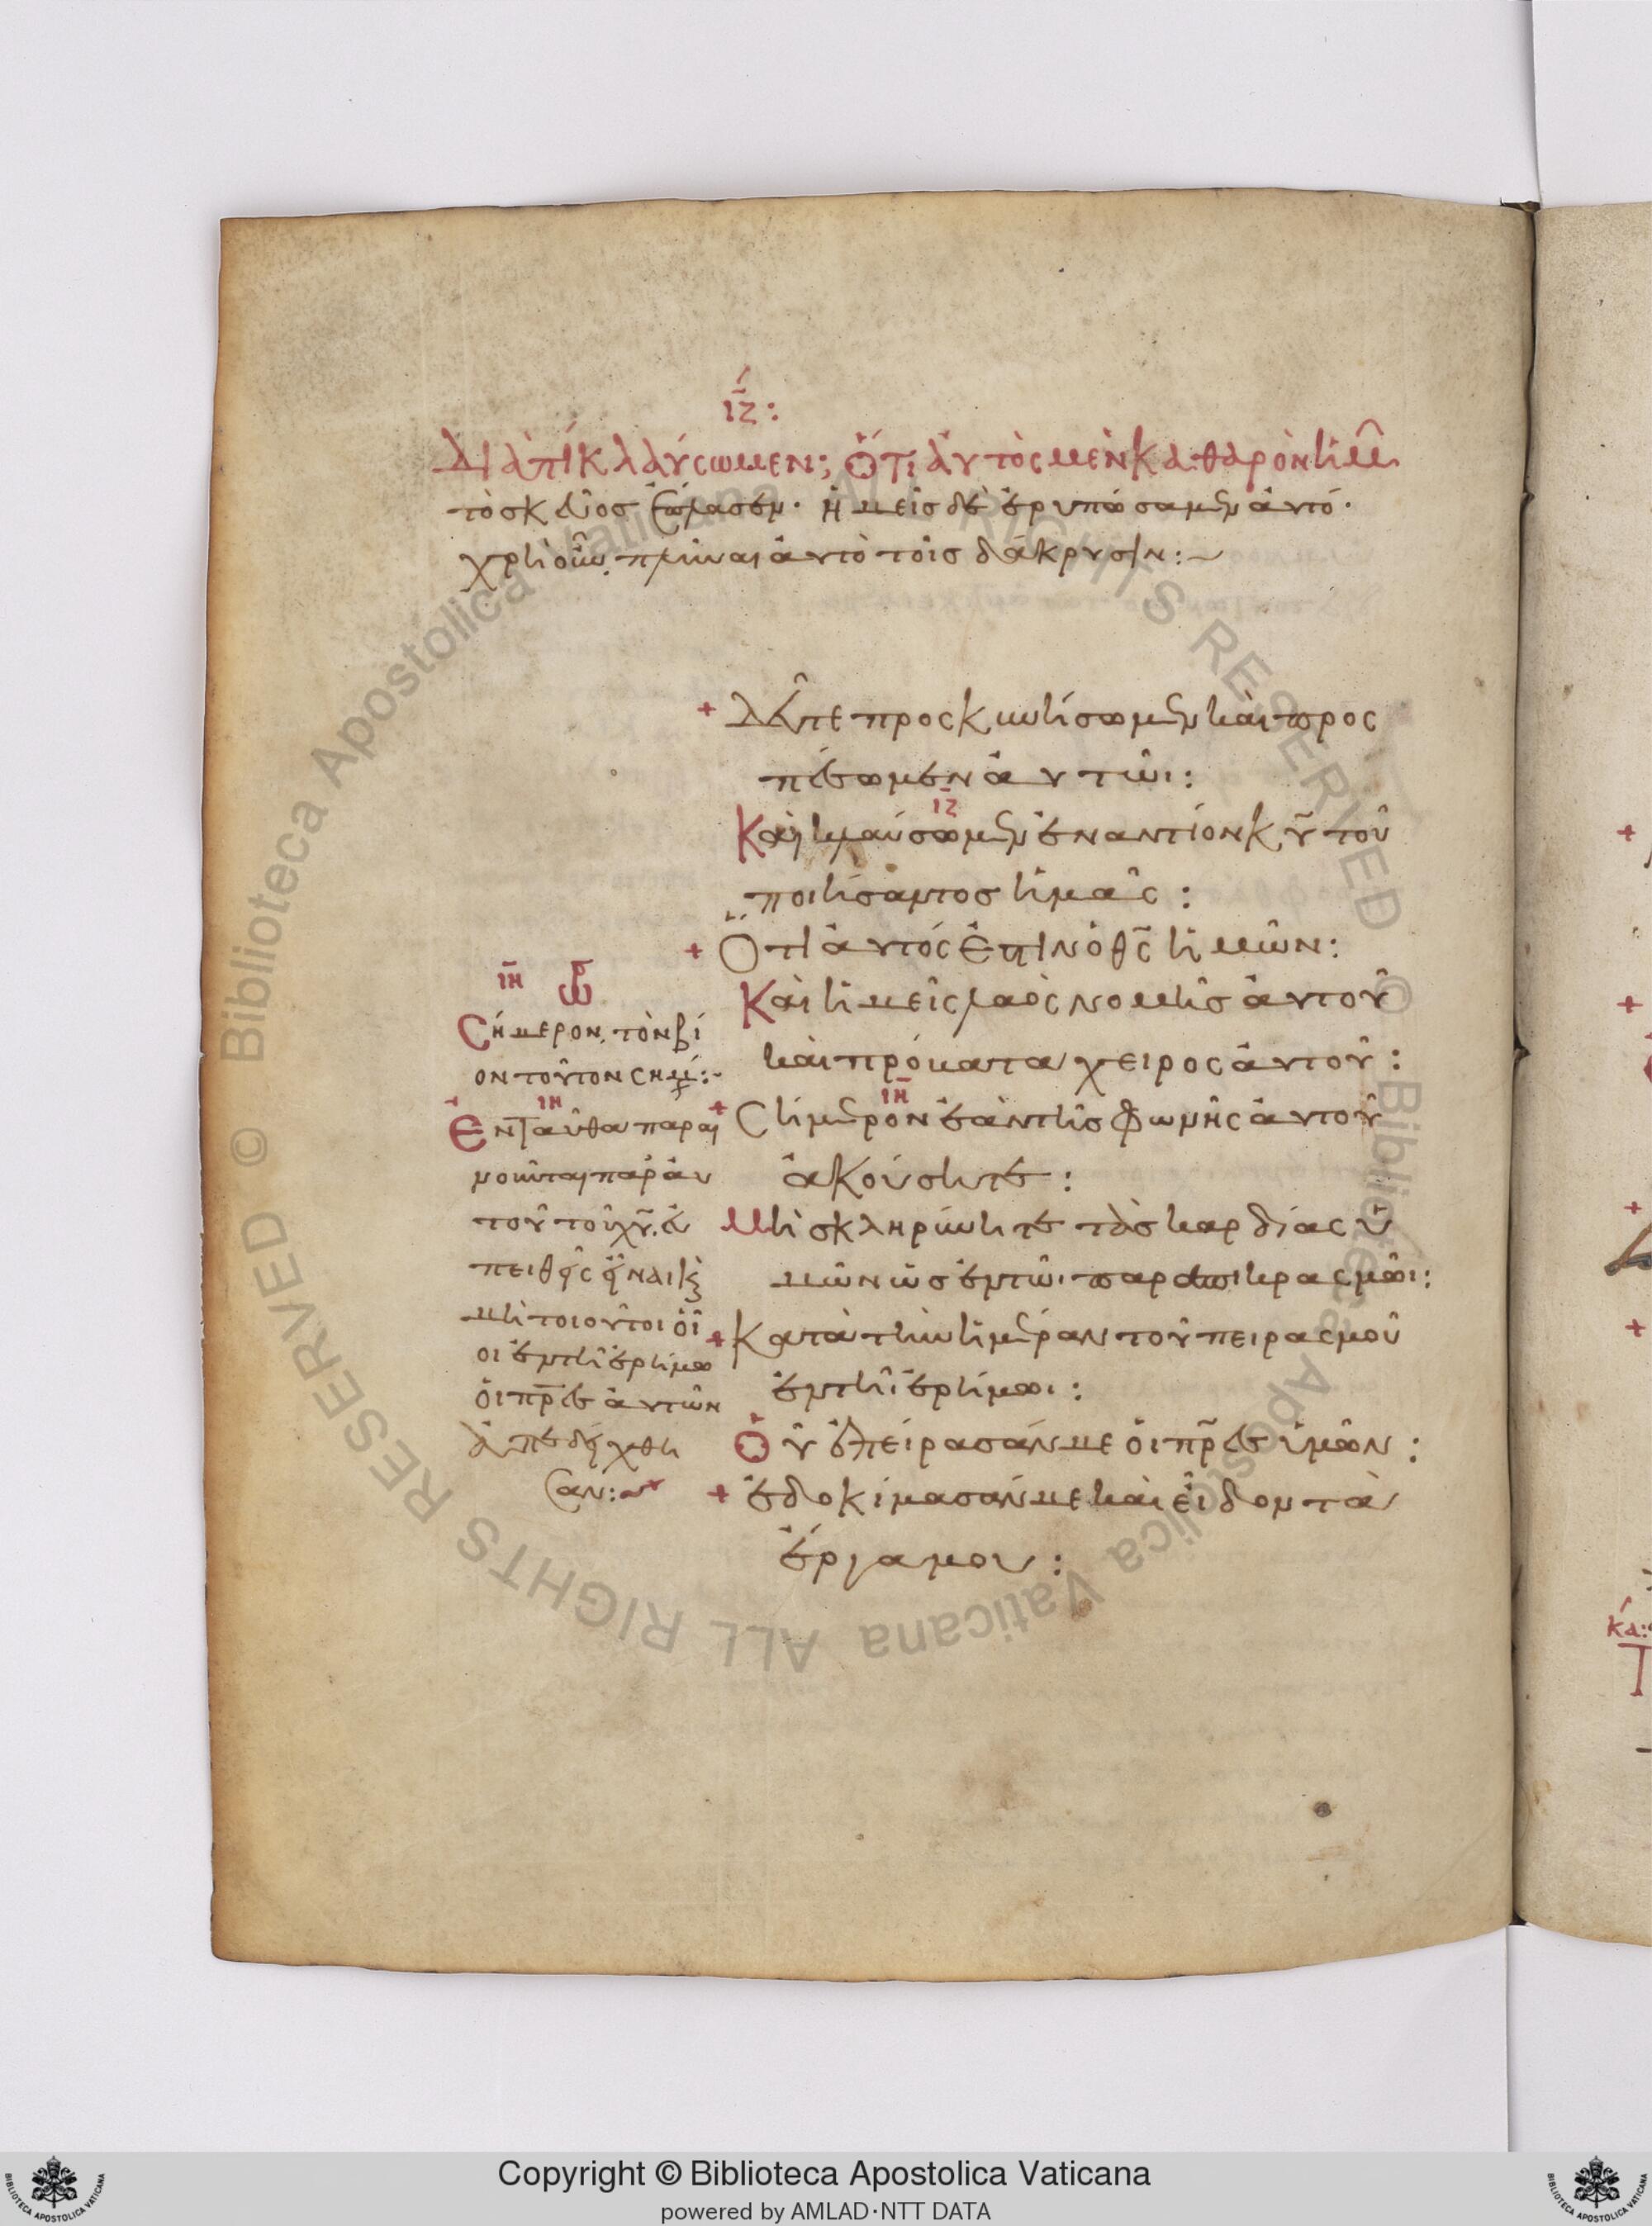 ιζ:
Διατί κλαύσωμεν; Ὅτι αὐτὸς μὲν καθαρὸν ἡμῖ
τὸ σκεῦος ἔπλασεν· ἡμεῖς δὲ ἐρυπώσαμεν αὐτό·
χρὴ οὖν πλῦναι αὐτὸ τοῖς δάκρυσιν:~
+ Δεῦτε προσκυνήσωμεν καὶ προσ
πέσωμεν αὐτῶι:
ιζ
Καὶ κλαύσωμεν ἐναντίον κυ τοῦ
ποιήσαντος ἡμᾶς:
+ Ὅτι αὐτός ἐστιν ὁ θς ἡμῶν:
Καὶ ἡμεῖς λαὸς νομῆς αὐτοῦ
καὶ πρόβατα χειρὸς αὐτοῦ:
ιη
+ Σήμερον ἐὰν τῆς φωνῆς αὐτοῦ
ἀκούσητε:
Μὴ σκληρύνητε τὰς καρδίας ὑ
μῶν ὡς ἐν τῶι παραπικρασμῶι:
+ Κατὰ τὴν ἡμέραν τοῦ πειρασμοῦ
ἐν τῆι ἐρήμωι:
Οὗ ἐπείρασάν με οἱ πρες ὑμῶν:
+ ἐδοκίμασάν με καὶ εἶδον τὰ
ἔργα μου:
ιη
Σήμερον, τὸν βί
ον τοῦτον σημ:-
ιη
Ἐνταῦθα παραι
νοῦνται παρ' αὐ
τοῦ τοῦ χυ,
μὴ τοιοῦτοι οἷ
οι ἐν τῆ ἐρήμω
οἱ πρες αὐτῶν
ἀπεδείχθη
σαν:~
Copyright © Biblioteca Apostolica Vaticana
powered by AMLAD·NTT DATA
© Biblioteca Apostolica Vaticana ALL RIGHTS RESERVED
© Biblioteca Apostolica Vaticana ALL RIGHTS RESERVED